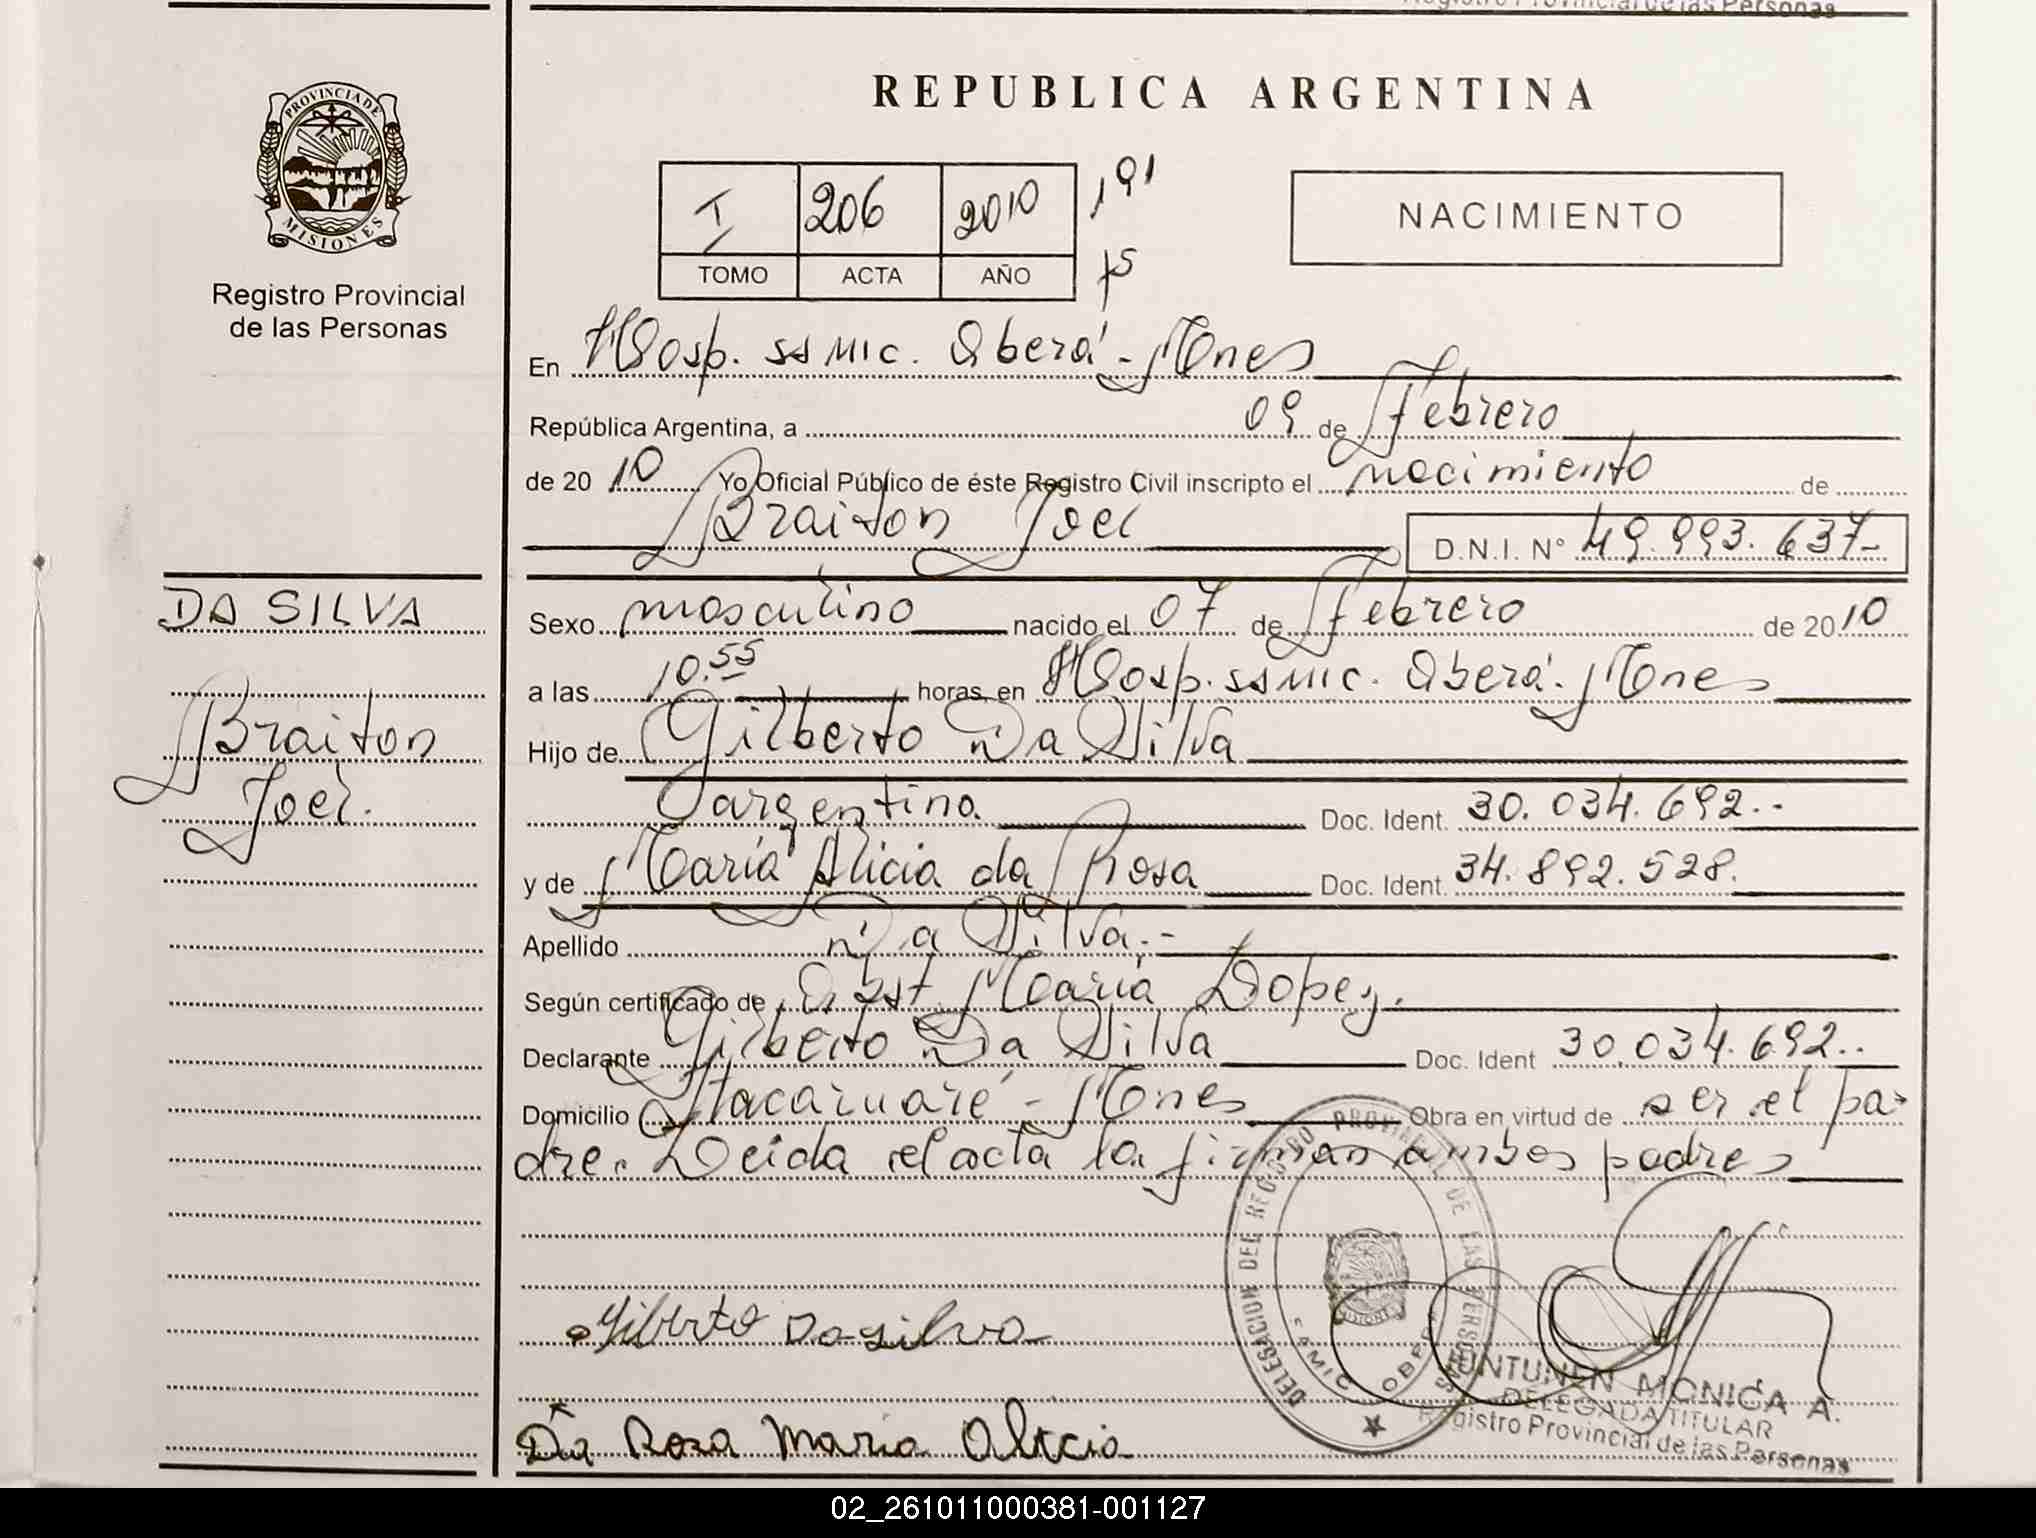 Registro Provincial de las Personas
REPUBLICA ARGENTINA
PROVINCIA DE
MISIONES
Registro Provincial
de las Personas
I 206 2010 191
TOMO ACTA AÑO
NACIMIENTO
En Hosp. SSMIC. Oberá - Mnes
República Argentina, a 09 de Febrero
de 20 10 Yo Oficial Público de éste Registro Civil inscripto el nacimiento de
Braiton Joel D.N.I. Nº 49.993.637-
DA SILVA
Braiton
Joel.
Sexo masculino nacido el 07 de Febrero de 20 10
a las 10.55 horas, en Hosp. SSMIC. Oberá. Mnes
Hijo de Gilberto Da Silva
argentino. Doc. Ident. 30.034.692.-
y de María Alicia da Rosa Doc. Ident. 34.892.528.
Apellido Da Silva.-
Según certificado de Obst. María Lopez.
Declarante Gilberto Da Silva Doc. Ident 30.034.692..
Domicilio Itacaruaré - Mnes Obra en virtud de ser el pa-
dre. Leida el acta la firman ambos padres
Gilberto Da silva
Da Rosa Maria Alicia
DELEGACION DEL REGISTRO PROVINCIAL DE LAS PERSONAS
SAMIC OBERA
MISIONES
MONICA A.
DELEGADA TITULAR
Registro Provincial de las Personas
02_261011000381-001127